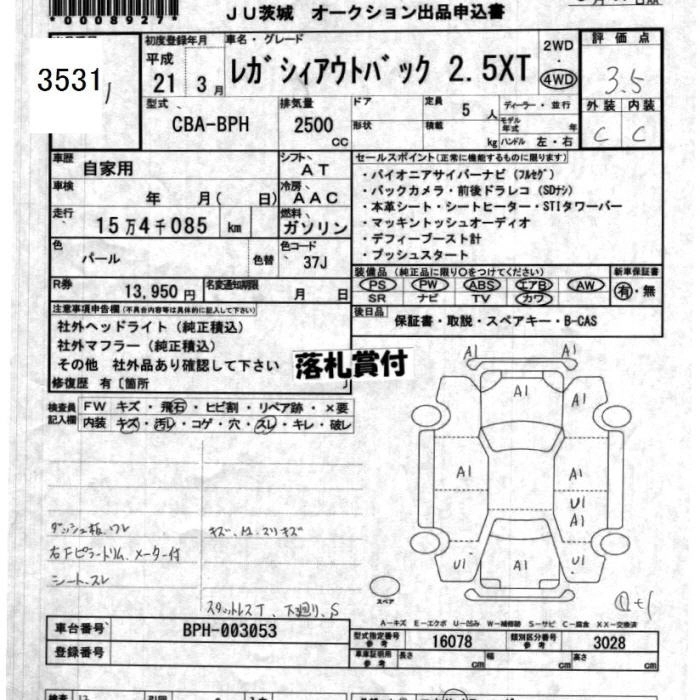 *0008927*
JU茨城 オークション出品申込書
3531
初度登録年月
平成
21 3月
車名・グレード
レガシィアウトバック 2.5XT
2WD
・
4WD
評価点
3.5
外装 内装
C C
型式
CBA-BPH
排気量
2500
cc
ドア
形状
定員 5 人
積載 kg
ディーラー・並行
モデル年式 年
ハンドル 左・右
車歴
自家用
シフト
AT
車検
年 月( 日)
冷房
AAC
走行
15万4千085 km
燃料
ガソリン
色
パール
色替
色コード
37J
R券
13,950円
名変通知期限
月 日
セールスポイント(正常に機能するものに限ります)
・パイオニアサイバーナビ(フルセグ)
・バックカメラ・前後ドラレコ(SDナシ)
・本革シート・シートヒーター・STIタワーバー
・マッキントッシュオーディオ
・デフィーブースト計
・プッシュスタート
装備品(純正品に限り〇をつけてください)
PS PW ABS エアB AW
SR ナビ TV カワ
新車保証書
有・無
後日品
保証書・取説・スペアキー・B-CAS
注意事項申告欄(不具合内容等は具体的に記入して下さい)
社外ヘッドライト(純正積込)
社外マフラー(純正積込)
その他 社外品あり確認して下さい
修復歴 有〔箇所
落札賞付
検査員
記入欄
FW キズ・飛石・ヒビ割・リペア跡・×要
内装 キズ・汚レ・コゲ・穴・スレ・キレ・破レ
A1 A1
A1 A1 A1
A1 A1
U1
A1
U1 A1 U1
スペア
ダッシュ板ワレ
右Fピラートリム、メーター付
シート、スレ
スタットレスT、下廻り、S
A－キズ E－エクボ U－凹み W－補修跡 S－サビ C－腐食 XX－交換済
車台番号
BPH-003053
登録番号
型式指定番号
参考
16078
類別区分番号
参考
3028
車庫証明用
参考
長さ cm
幅 cm
高さ cm